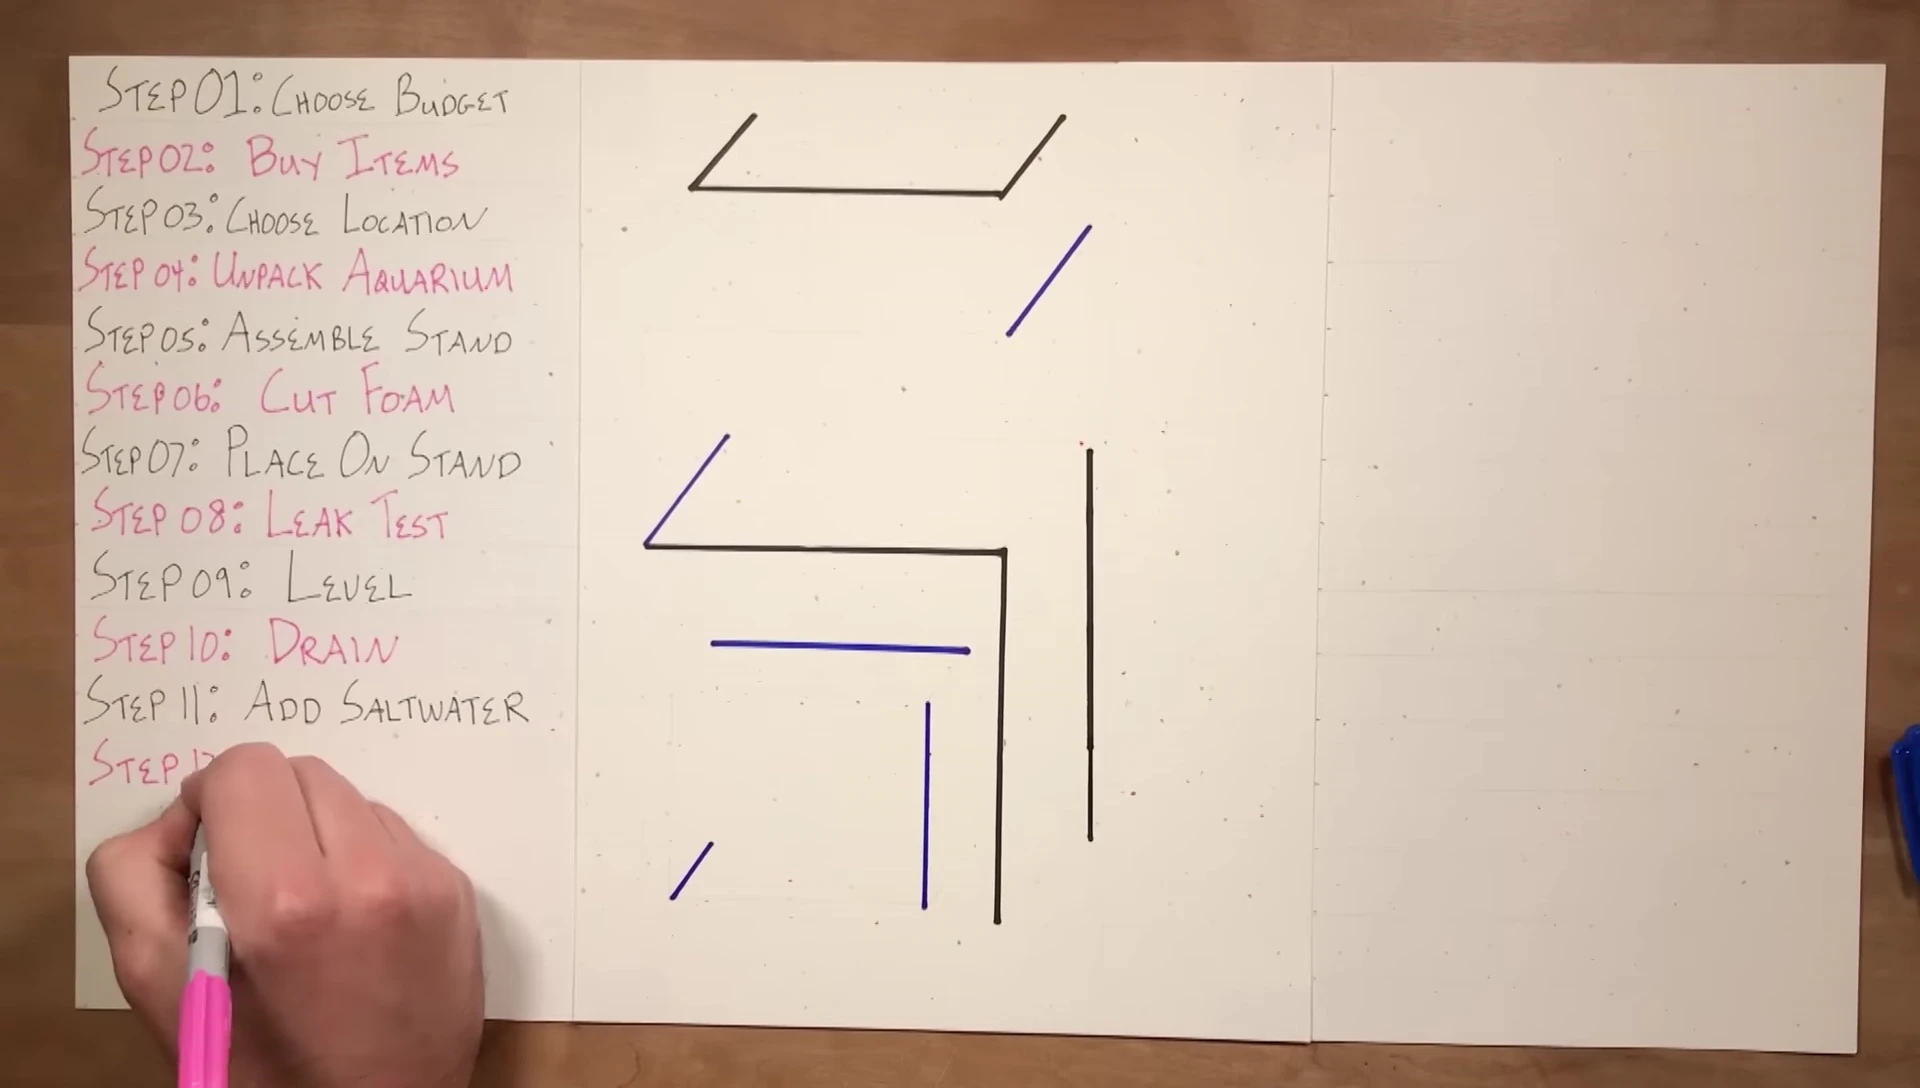 STEP 01: CHOOSE BUDGET
STEP 02: BUY ITEMS
STEP 03: CHOOSE LOCATION
STEP 04: UNPACK AQUARIUM
STEP 05: ASSEMBLE STAND
STEP 06: CUT FOAM
STEP 07: PLACE ON STAND
STEP 08: LEAK TEST
STEP 09: LEVEL
STEP 10: DRAIN
STEP 11: ADD SALTWATER
STEP 12